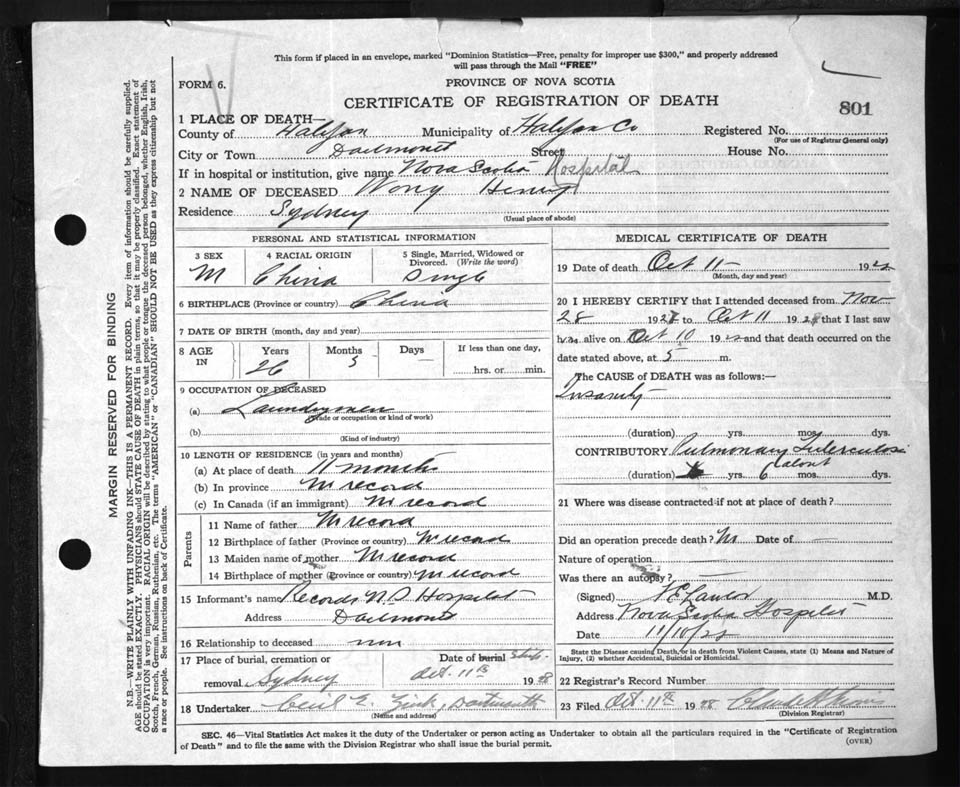 This form if placed in an envelope, marked "Dominion Statistics—Free, penalty for improper use $300," and properly addressed
will pass through the Mail "FREE"
FORM 6.
PROVINCE OF NOVA SCOTIA
CERTIFICATE OF REGISTRATION OF DEATH
801
1 PLACE OF DEATH—
County of Halifax Municipality of Halifax Co Registered No.
(For use of Registrar General only)
City or Town Dartmouth Street House No.
If in hospital or institution, give name Nova Scotia Hospital
2 NAME OF DECEASED Wong Henry
Residence Sydney
(Usual place of abode)
PERSONAL AND STATISTICAL INFORMATION
3 SEX 4 RACIAL ORIGIN 5 Single, Married, Widowed or Divorced. (Write the word)
M China Single
6 BIRTHPLACE (Province or country) China
7 DATE OF BIRTH (month, day and year)
8 AGE IN Years Months Days If less than one day,
26 5 — hrs. or min.
9 OCCUPATION OF DECEASED
(a) Laundryman
(Trade or occupation or kind of work)
(b)
(Kind of industry)
10 LENGTH OF RESIDENCE (in years and months)
(a) At place of death 11 months
(b) In province No record
(c) In Canada (if an immigrant) No record
Parents
11 Name of father No record
12 Birthplace of father (Province or country) No record
13 Maiden name of mother No record
14 Birthplace of mother (Province or country) No record
15 Informant's name Records N.S Hospital
Address Dartmouth
16 Relationship to deceased non
17 Place of burial, cremation or removal Sydney Date of burial Ship. Oct. 11th 1928
18 Undertaker Cecil E. Zink, Dartmouth
(Name and address)
MEDICAL CERTIFICATE OF DEATH
19 Date of death Oct 11 — 192
(Month, day and year)
20 I HEREBY CERTIFY that I attended deceased from Nov
28 1927 to Oct 11 1928 that I last saw
him alive on Oct 10 192 and that death occurred on the
date stated above, at 5 m.
The CAUSE of DEATH was as follows:—
Insanity
(duration) yrs. mos. dys.
CONTRIBUTORY Pulmonary Tuberculosis
(duration) yrs. 6 mos. dys.
about
21 Where was disease contracted if not at place of death?
Did an operation precede death? No Date of —
Nature of operation
Was there an autopsy? —
(Signed) Lawlor M.D.
Address Nova Scotia Hospital
Date 11/10/28
State the Disease causing Death, or in death from Violent Causes, state (1) Means and Nature of
Injury, (2) whether Accidental, Suicidal or Homicidal.
22 Registrar's Record Number
23 Filed Oct. 11th 1928
(Division Registrar)
SEC. 46—Vital Statistics Act makes it the duty of the Undertaker or person acting as Undertaker to obtain all the particulars required in the "Certificate of Registration
of Death" and to file the same with the Division Registrar who shall issue the burial permit.
(OVER)
MARGIN RESERVED FOR BINDING
N.B.—WRITE PLAINLY WITH UNFADING INK—THIS IS A PERMANENT RECORD. Every item of information should be carefully supplied.
AGE should be stated EXACTLY. PHYSICIANS should STATE CAUSE OF DEATH in plain terms, so that it may be properly classified. Exact statement of
OCCUPATION is very important. RACIAL ORIGIN will be described by stating to what people or tongue the deceased person belonged, whether English, Irish,
Scotch, French, German, Russian, Ruthenian, etc. The terms "AMERICAN" or "CANADIAN" SHOULD NOT BE USED as they express citizenship but not
a race or people. See instructions on back of Certificate.